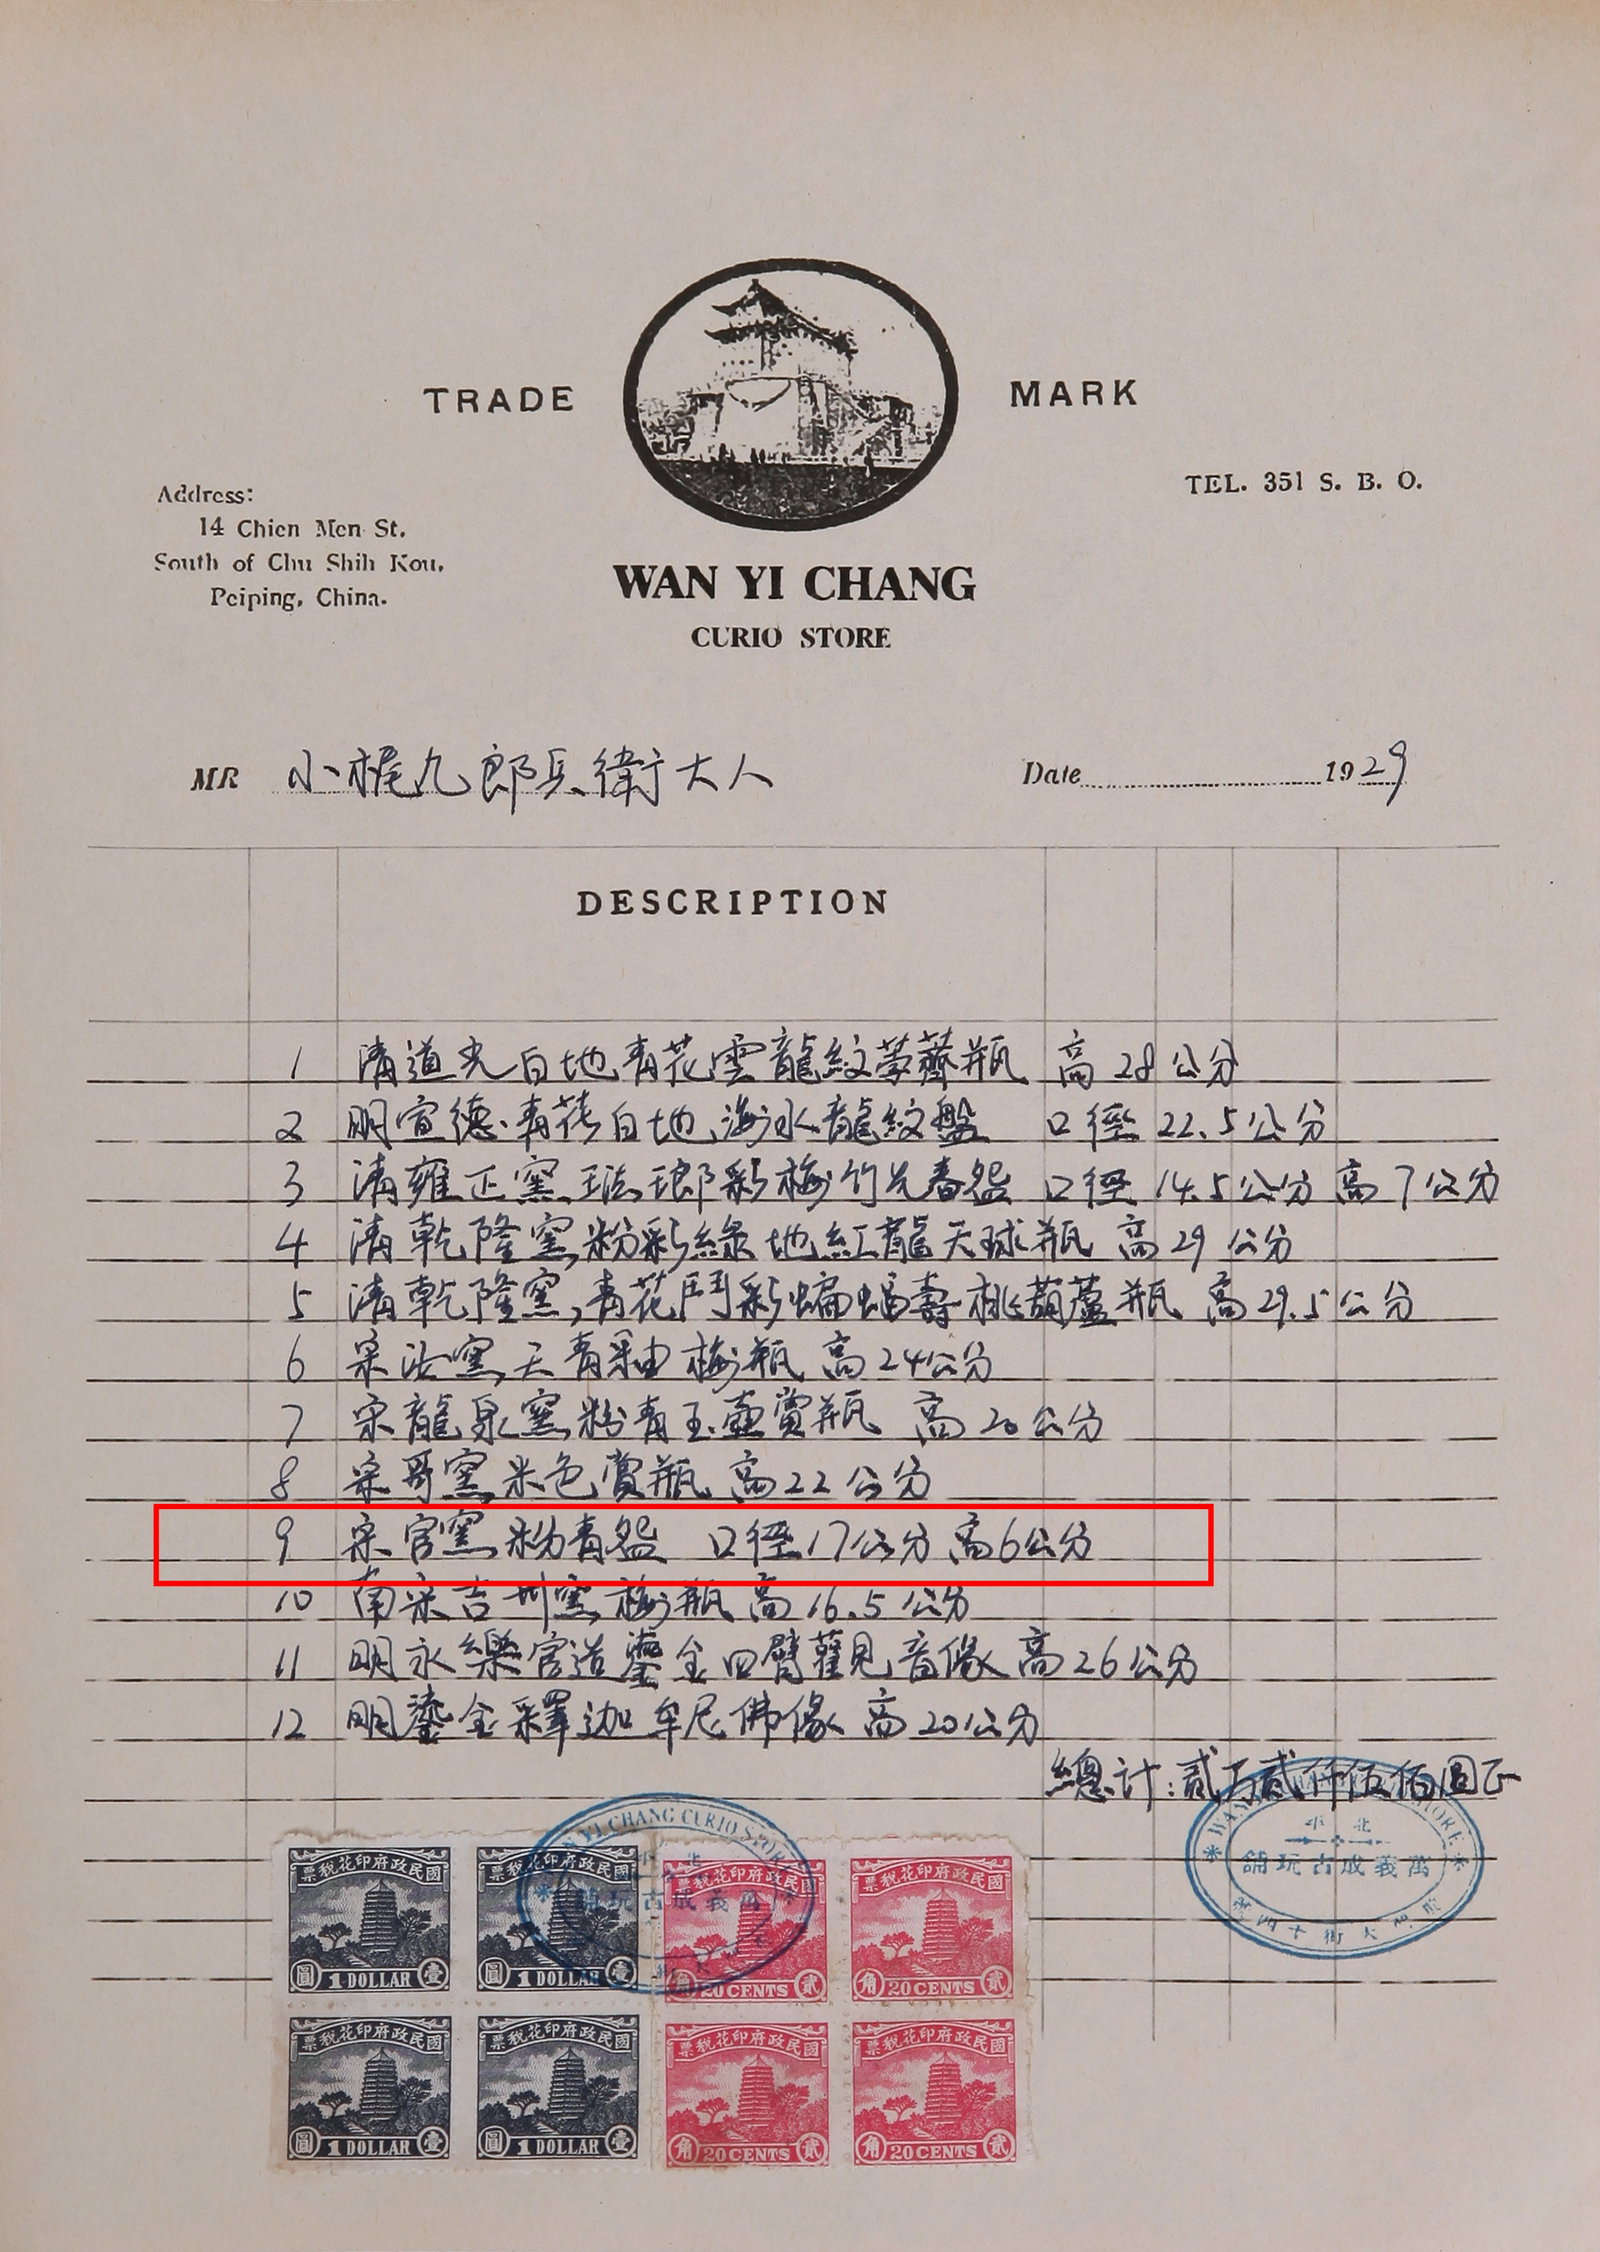 TRADE MARK
Address:
14 Chien Men St.
South of Chu Shih Kou,
Peiping, China.
TEL. 351 S. B. O.
WAN YI CHANG
CURIO STORE
MR 小梶九郎兵衛大人
Date 1929
DESCRIPTION
1 清道光白地青花雲龍紋荸薺瓶 高28公分
2 明宣德青花白地海水龍紋盤 口徑22.5公分
3 清雍正窯琺瑯彩梅竹先春盌 口徑14.5公分 高7公分
4 清乾隆窯粉彩綠地紅龍天球瓶 高29公分
5 清乾隆窯,青花鬥彩蝙蝠壽桃葫蘆瓶 高29.5公分
6 宋汝窯天青釉梅瓶 高24公分
7 宋龍泉窯粉青玉壺賞瓶 高20公分
8 宋哥窯米色賞瓶 高22公分
9 宋官窯粉青盌 口徑17公分 高6公分
10 南宋吉州窯梅瓶 高16.5公分
11 明永樂宮造鎏金四臂觀音像 高26公分
12 明鎏金釋迦牟尼佛像 高20公分
總计:貳万貳仟伍佰圓正
WAN YI CHANG CURIO STORE
北平
萬義成古玩舖
票稅花印府政民國
圓 1 DOLLAR 壹
票稅花印府政民國
圓 1 DOLLAR 壹
票稅花印府政民國
角 20 CENTS 貳
票稅花印府政民國
角 20 CENTS 貳
票稅花印府政民國
圓 1 DOLLAR 壹
票稅花印府政民國
圓 1 DOLLAR 壹
票稅花印府政民國
角 20 CENTS 貳
票稅花印府政民國
角 20 CENTS 貳